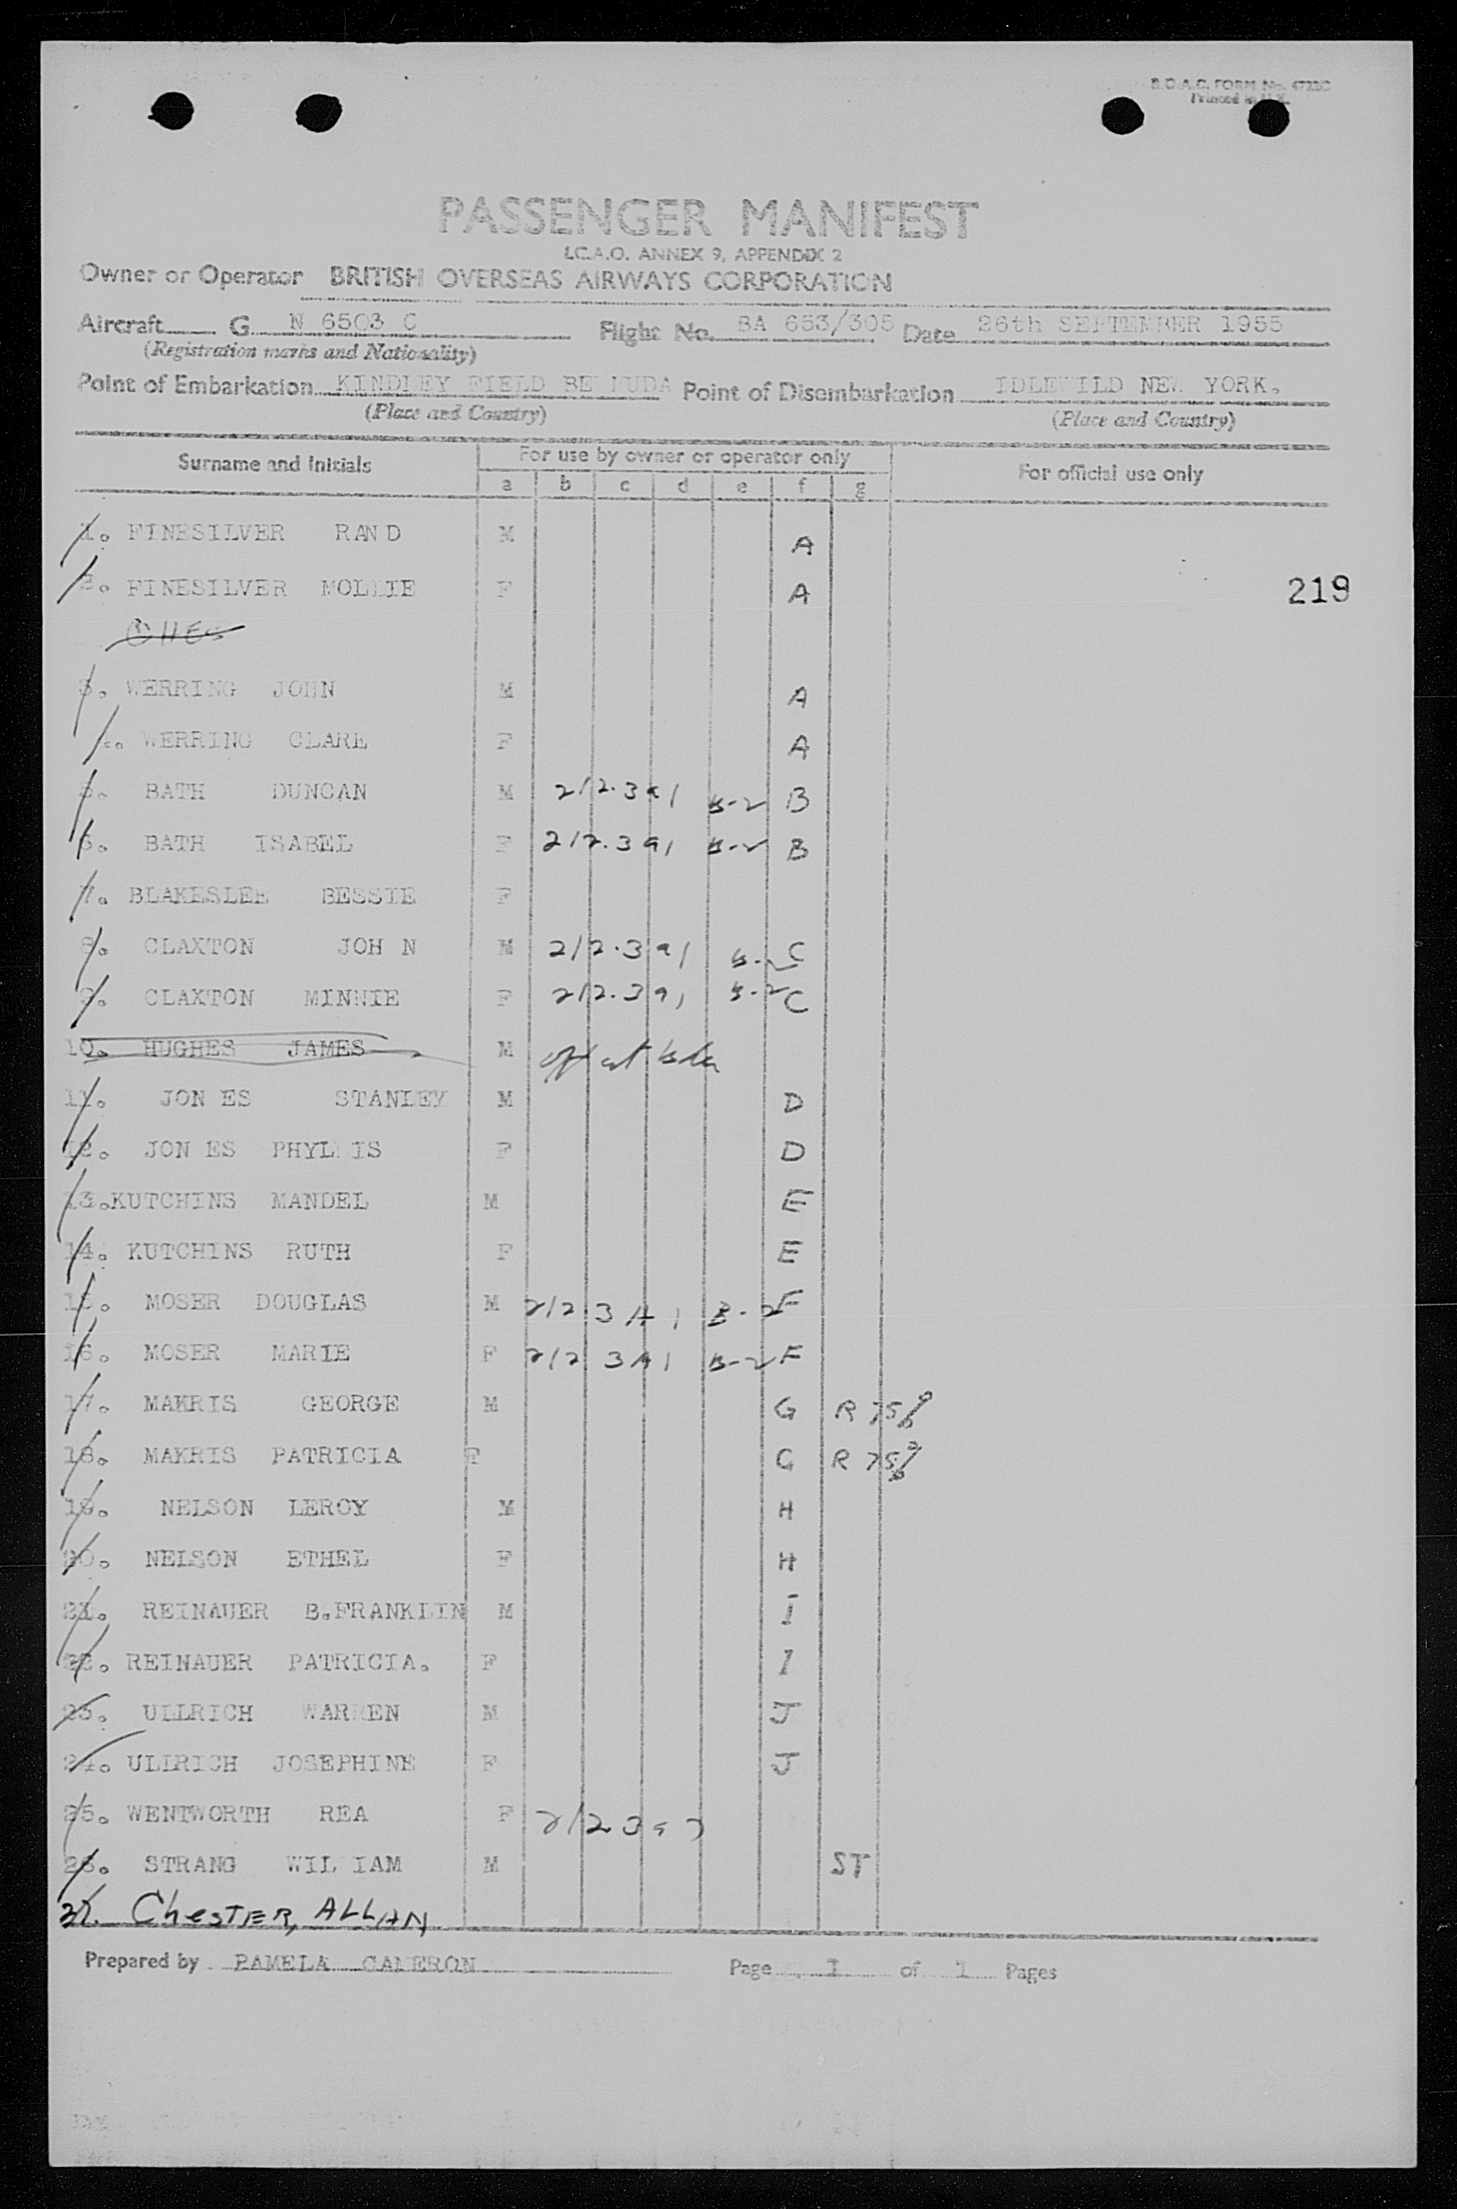 B.O.A.C. FORM No. 4722C
Printed in U.K.
PASSENGER MANIFEST
I.C.A.O. ANNEX 9, APPENDIX 2
Owner or Operator BRITISH OVERSEAS AIRWAYS CORPORATION
Aircraft G N 6503 C Flight No. BA 653/305 Date 26th SEPTEMBER 1955
(Registration marks and Nationality)
Point of Embarkation KINDLEY FIELD BERMUDA Point of Disembarkation IDLEWILD NEW YORK.
(Place and Country) (Place and Country)
Surname and Initials For use by owner or operator only For official use only
a b c d e f g
1. FINESILVER RAND M A
2. FINESILVER MOLLIE F A
219
CHES
3. WERRING JOHN M A
4. WERRING CLARE F A
5. BATH DUNCAN M 212.391 B-2 B
6. BATH ISABEL F 212.391 B-2 B
7. BLAKESLEE BESSIE F
8. CLAXTON JOH N M 212.391 B-2 C
9. CLAXTON MINNIE F 212.391 B-2 C
10. HUGHES JAMES M off at bda
11. JON ES STANLEY M D
12. JON ES PHYLLIS F D
13. KUTCHINS MANDEL M E
14. KUTCHINS RUTH F E
15. MOSER DOUGLAS M 212.3A1 B-2 F
16. MOSER MARIE F 212 3A1 B-2 F
17. MAKRIS GEORGE M G R 75%
18. MAKRIS PATRICIA F G R 75%
19. NELSON LEROY M H
20. NELSON ETHEL F H
21. REINAUER B.FRANKLIN M I
22. REINAUER PATRICIA. F I
23. ULLRICH WARREN M J
24. ULLRICH JOSEPHINE F J
25. WENTWORTH REA F
26. STRANG WILLIAM M ST
27. CHESTER, ALLAN
Prepared by PAMELA CAMERON Page 1 of 1 Pages